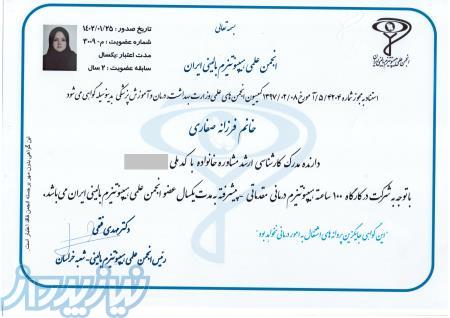 بسمه تعالی
تاریخ صدور : ۱۴۰۲/۰۱/۲۵
شماره عضویت : م-۳۰۰۹
مدت اعتبار :یکسال
سابقه عضویت : ۲ سال
انجمن علمی هیپنوتیزم بالینی ایران
انجمن علمی هیپنوتیزم بالینی ایران
استناد به مجوز شماره ۵/۴۲۰۴/آموزخ ۱۳۹۷/۰۲/۰۸ کمیسیون انجمن های علمی وزارت بهداشت درمان و آموزش پزشکی بدینوسیله گواهی می شود
خانم فرزانه صفاری
دارنده مدرک کارشناسی ارشد مشاوره خانواده با کد ملی
با توجه به شرکت در کارگاه ۱۰۰ ساعته هیپنوتیزم درمانی مقدماتی _ پیشرفته به مدت یکسال عضو انجمن علمی هیپنوتیزم بالینی ایران می باشد.
"این گواهی جایگزین پروانه های اشتغال به امور درمانی نخواهد بود"
دکتر مهدی فتحی
رئیس انجمن علمی هیپنوتیزم بالینی - شعبه خراسان
این گواهی بدون مهر برجسته انجمن فاقد اعتبار است.
نیازپرداز